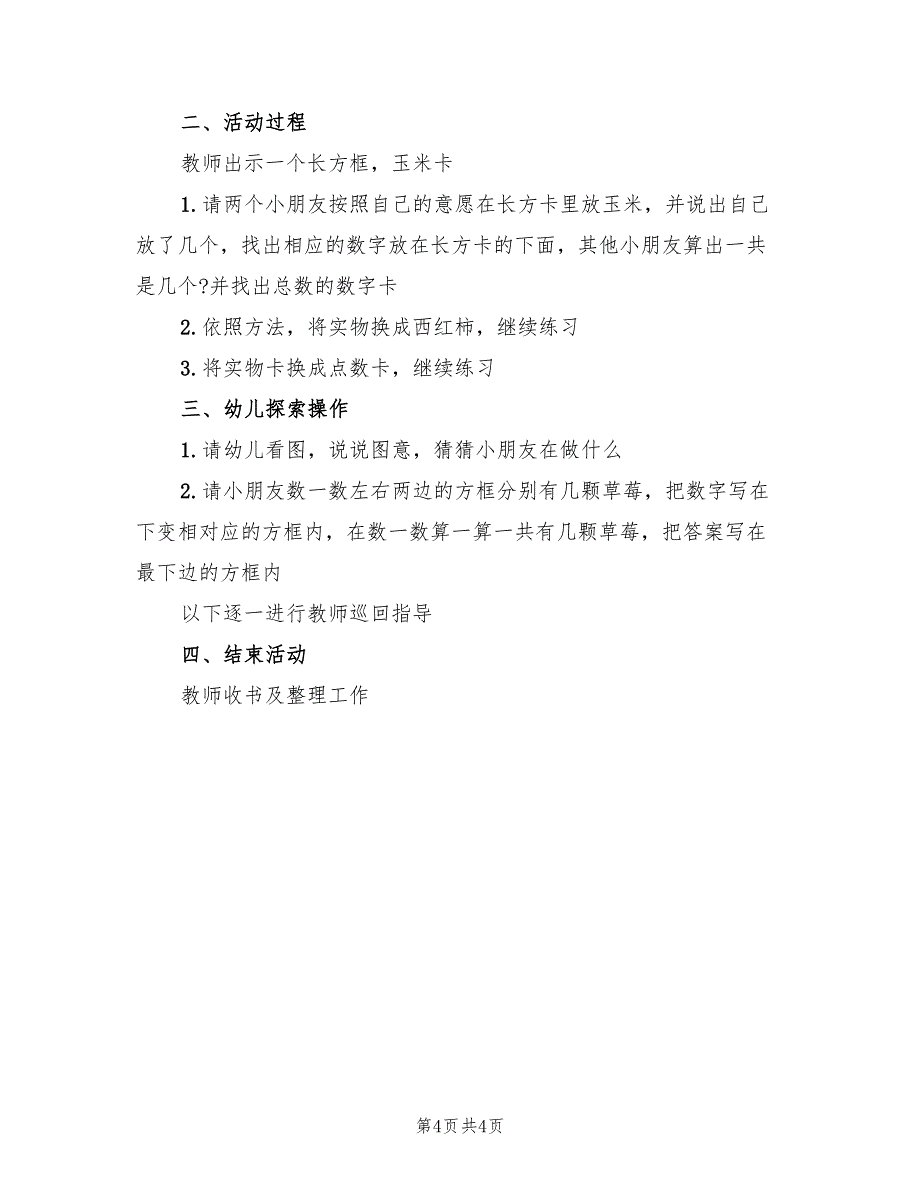 二、活动过程
教师出示一个长方框，玉米卡
1.请两个小朋友按照自己的意愿在长方卡里放玉米，并说出自己
放了几个，找出相应的数字放在长方卡的下面，其他小朋友算出一共
是几个?并找出总数的数字卡
2.依照方法，将实物换成西红柿，继续练习
3.将实物卡换成点数卡，继续练习
三、幼儿探索操作
1.请幼儿看图，说说图意，猜猜小朋友在做什么
2.请小朋友数一数左右两边的方框分别有几颗草莓，把数字写在
下变相对应的方框内，在数一数算一算一共有几颗草莓，把答案写在
最下边的方框内
以下逐一进行教师巡回指导
四、结束活动
教师收书及整理工作
第4页共4页